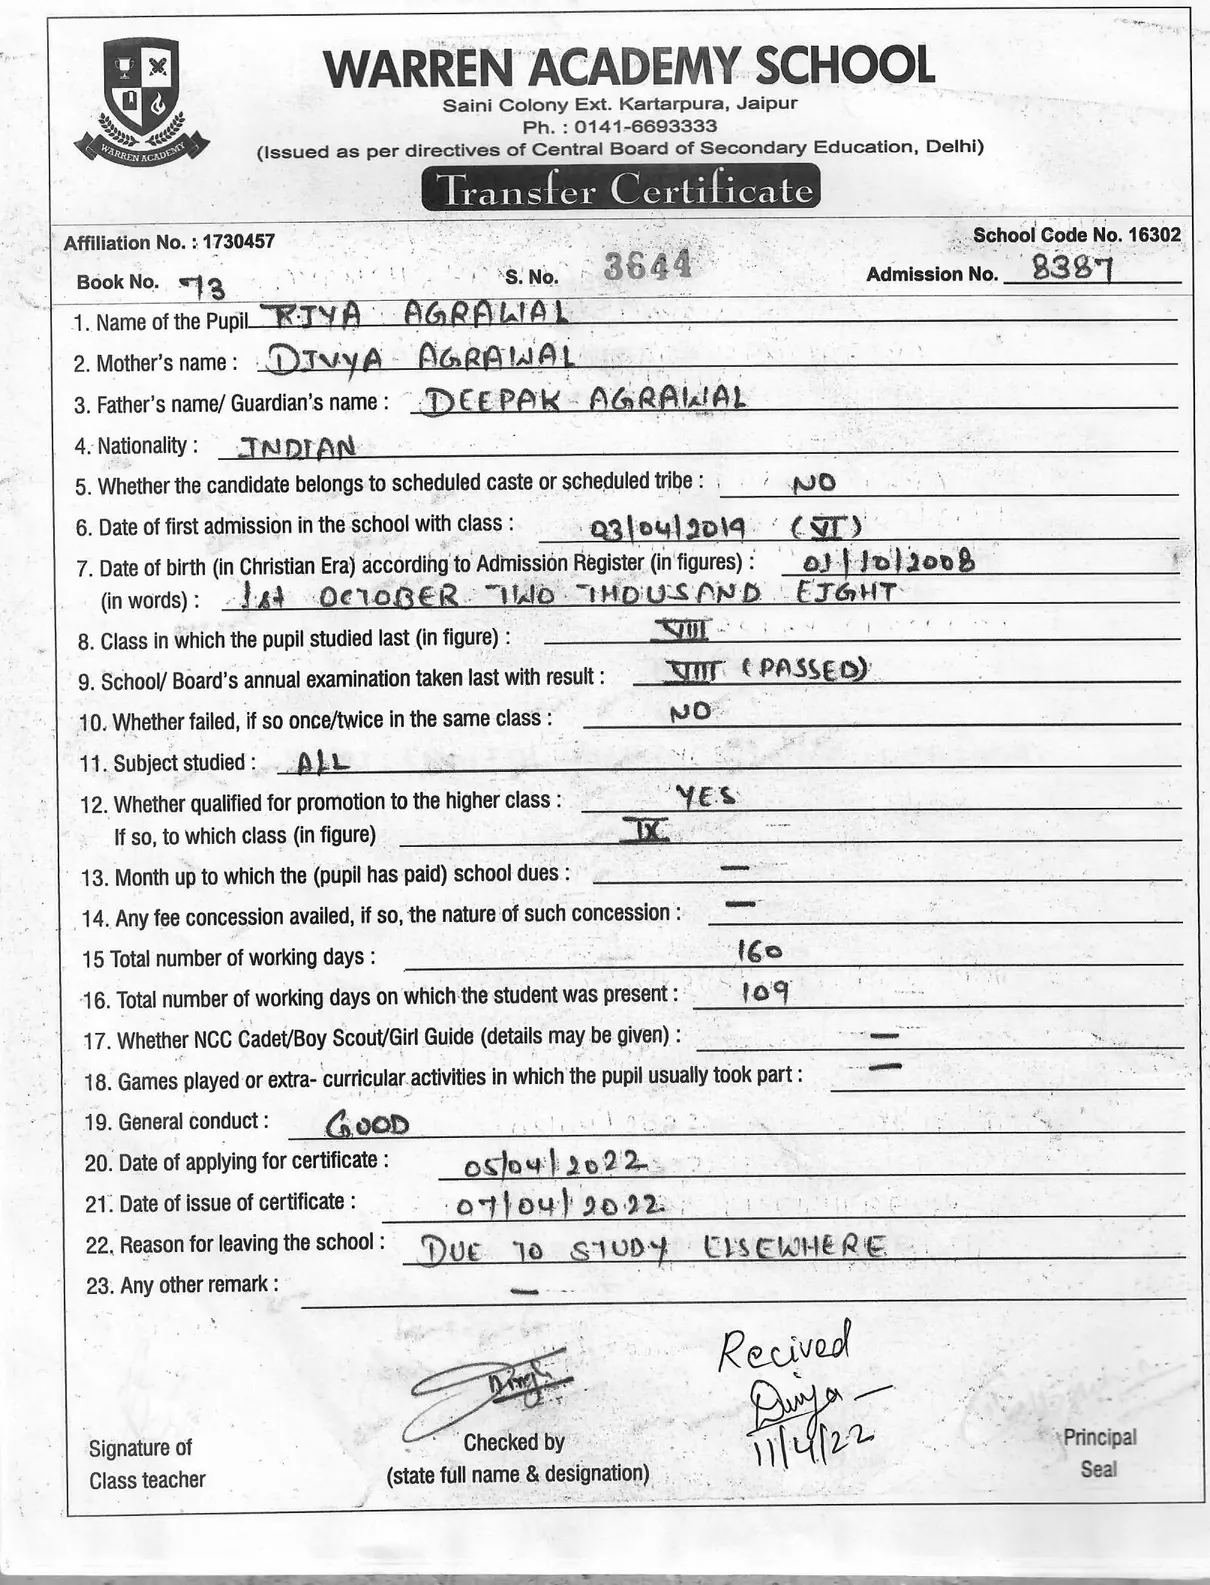 WARREN ACADEMY SCHOOL
Saini Colony Ext. Kartarpura, Jaipur
Ph. : 0141-6693333
(Issued as per directives of Central Board of Secondary Education, Delhi)
WARREN ACADEMY
Transfer Certificate
Affiliation No. : 1730457 School Code No. 16302
Book No. 73 S. No. 3644 Admission No. 8387
1. Name of the Pupil RIYA AGRAWAL
2. Mother's name : DIVYA AGRAWAL
3. Father's name/ Guardian's name : DEEPAK AGRAWAL
4. Nationality : INDIAN
5. Whether the candidate belongs to scheduled caste or scheduled tribe : NO
6. Date of first admission in the school with class : 03/04/2019 (VI)
7. Date of birth (in Christian Era) according to Admission Register (in figures) : 01/10/2008
(in words) : 1st OCTOBER TWO THOUSAND EIGHT
8. Class in which the pupil studied last (in figure) : VIII
9. School/ Board's annual examination taken last with result : VIII (PASSED)
10. Whether failed, if so once/twice in the same class : NO
11. Subject studied : ALL
12. Whether qualified for promotion to the higher class : YES
If so, to which class (in figure) IX
13. Month up to which the (pupil has paid) school dues : —
14. Any fee concession availed, if so, the nature of such concession : —
15 Total number of working days : 160
16. Total number of working days on which the student was present : 109
17. Whether NCC Cadet/Boy Scout/Girl Guide (details may be given) : —
18. Games played or extra- curricular activities in which the pupil usually took part : —
19. General conduct : GOOD
20. Date of applying for certificate : 05/04/2022
21. Date of issue of certificate : 07/04/2022
22. Reason for leaving the school : DUE TO STUDY ELSEWHERE
23. Any other remark : —
Recived
Divya
11/4/22
Signature of
Class teacher
Checked by
(state full name & designation)
Principal
Seal